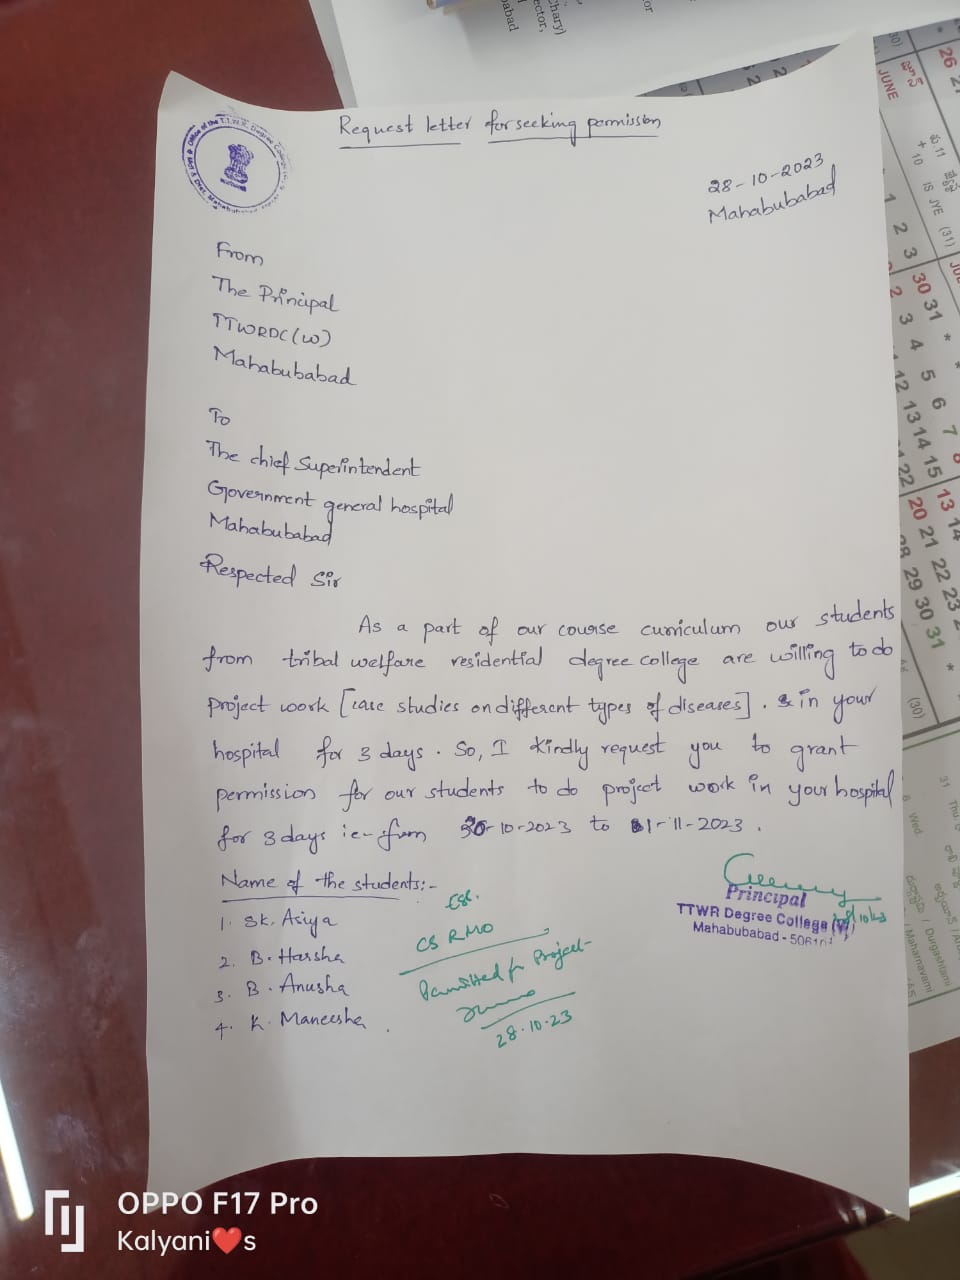 Request letter for seeking permission
28-10-2023
Mahabubabad
From
The Principal
TTWRDC(W)
Mahabubabad
To
The chief Superintendent
Government general hospital
Mahabubabad
Respected Sir
As a part of our course curriculum our students
from tribal welfare residential degree college are willing to do
project work [case studies on different types of diseases]. in your
hospital for 3 days. So, I kindly request you to grant
permission for our students to do project work in your hospital
for 3 days ie- from 30-10-2023 to 1-11-2023.
Name of the students:-
1. Sk. Asiya
2. B. Harsha
3. B. Anusha
4. K. Maneesha.
CS RMO
Permitted for Project
28.10.23
Principal
TTWR Degree College (W)
Mahabubabad - 506101
JUNE
OPPO F17 Pro
Kalyani❤️s